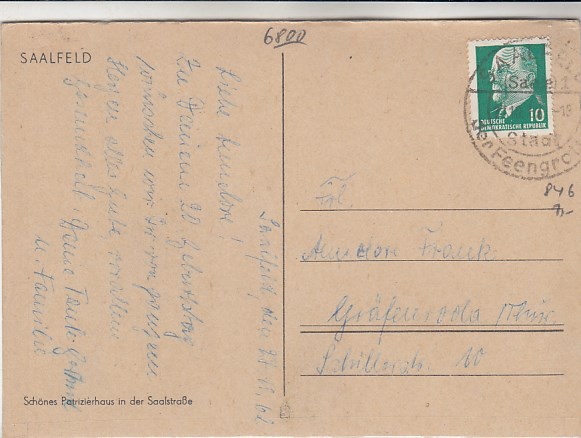 SAALFELD
6800
Saalfeld, den
Liebe
Zu Deinem 20. Geburtstag
wünschen wir Dir von ganzem
Herzen alles Gute, vor allem
Gesundheit. Deine Tante
u. Familie
Schönes Patrizierhaus in der Saalstraße
DEUTSCHE
DEMOKRATISCHE REPUBLIK
10
Saale 1
Stadt
der Feengrotten
846
Frl.
Frank
Gräfenroda Thür.
Schillerstr. 10